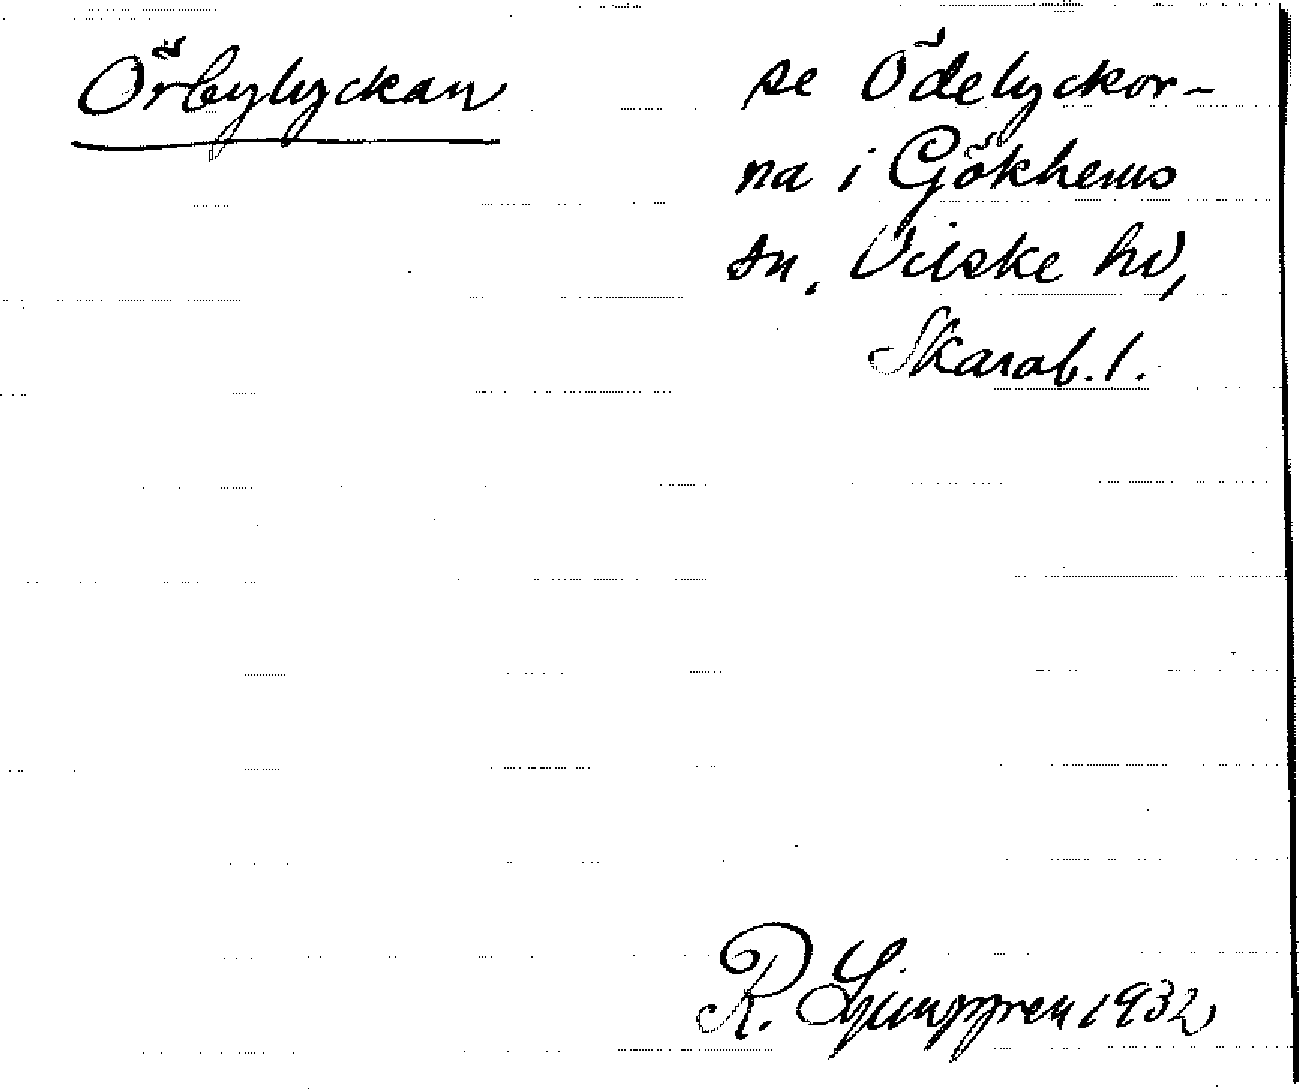 Örbylyckan
se Ödelyckor-
na i Gökhems
sn, Vilske hd,
Skarab. l.
R. Ljunggren 1932